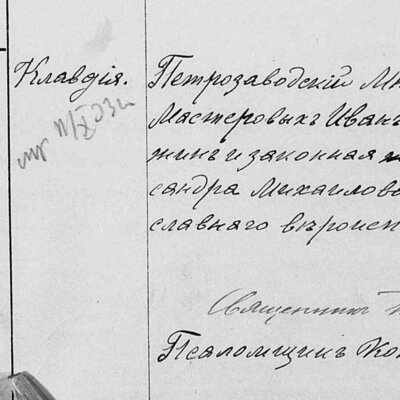 Клавдія.
Петрозаводскій
Мастеровыхъ Иван
жинъ и законная
сандра Михаилов
славнаго вѣроисп
Священникъ
Псаломщикъ